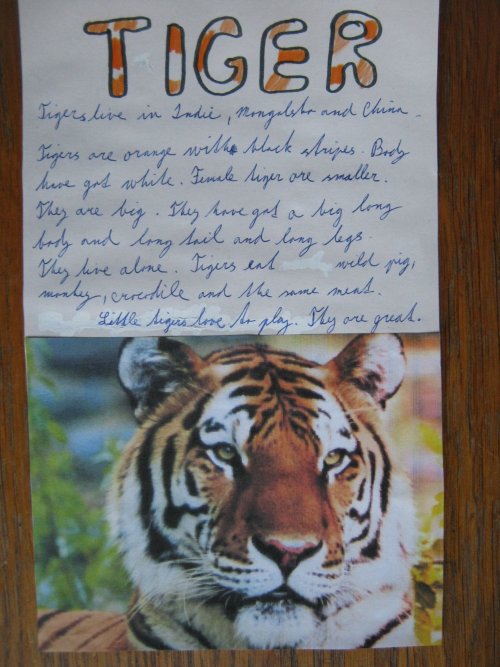 TIGER
Tigers live in Indie, Mongolsko and China.
Tigers are orange with black stripes. Body
have got white. Female tiger are smaller.
They are big. They have got a big long
body and long tail and long legs.
They live alone. Tigers eat wild pig,
monkey, crocodile and the same meat.
Little tigers love to play. They are great.